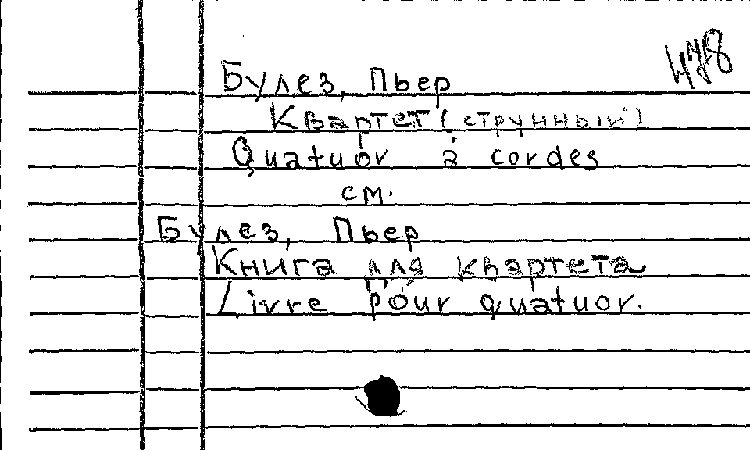 478
Булез, Пьер
Квартет (струнный)
Quatuor à cordes
см.
Булез, Пьер
Книга для квартета
Livre pour quatuor.